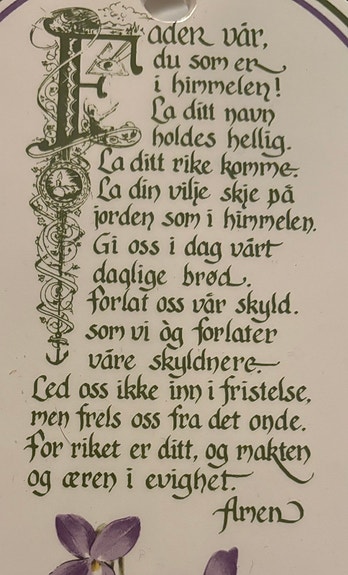 Fader vår,
du som er
i himmelen!
La ditt navn
holdes hellig.
La ditt rike komme.
La din vilje skje på
jorden som i himmelen.
Gi oss i dag vårt
daglige brød.
forlat oss vår skyld.
som vi òg forlater
våre skyldnere.
Led oss ikke inn i fristelse,
men frels oss fra det onde.
For riket er ditt, og makten
og æren i evighet.
Amen